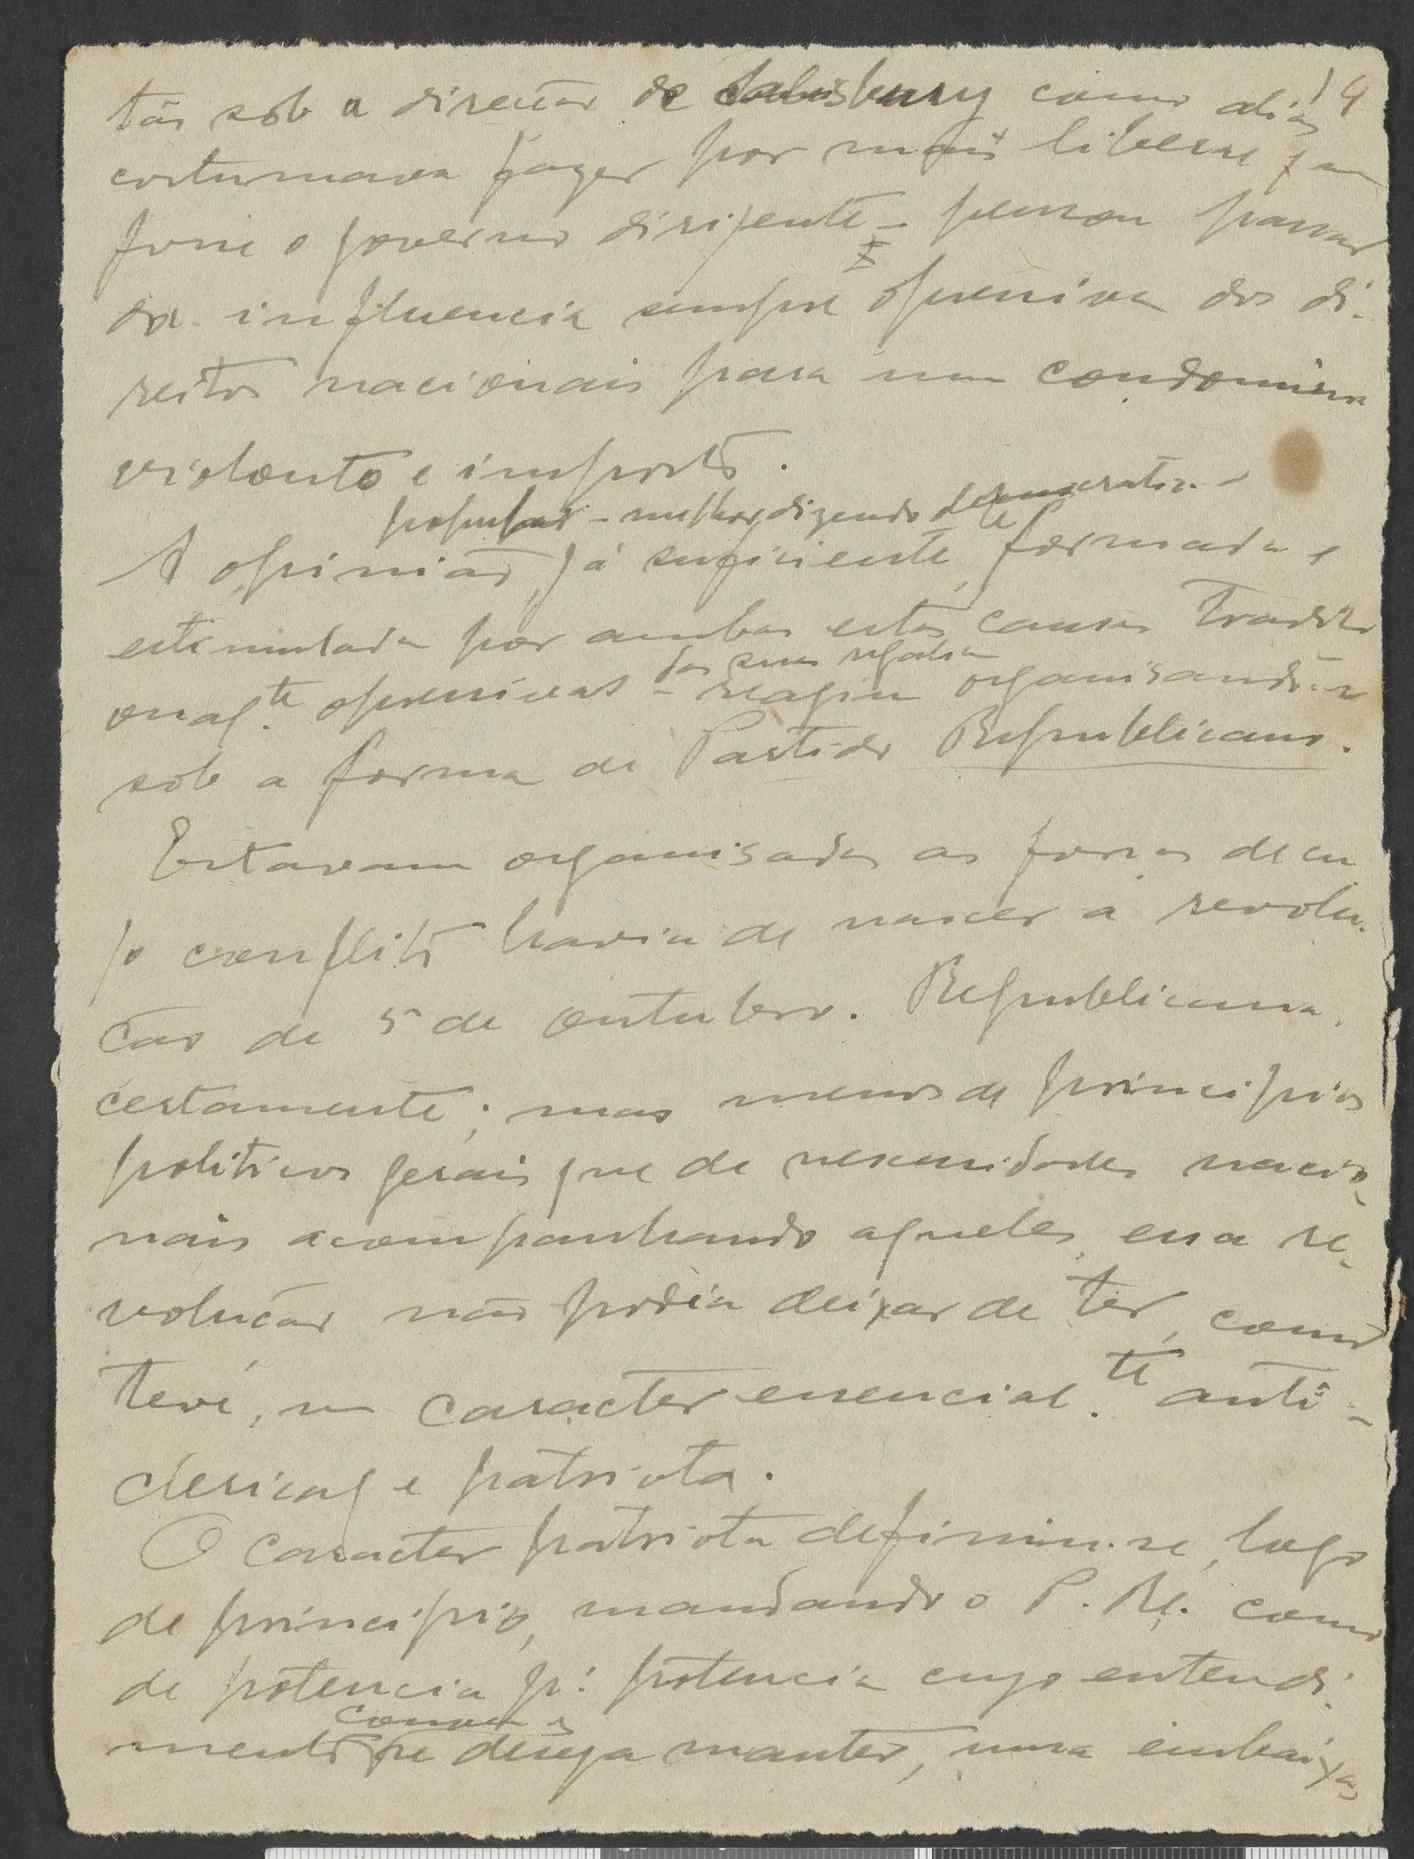 14
tão sob a direcção de Salisbury como aliás
costumava fazer por mais liberal que
fosse o governo dirigente – pensou passar
da influencia sempre opressiva dos di-
reitos nacionais para um condominio
violento e imposto.
popular – melhor dizendo democratica –
A opinião, já suficiente te formada e
estimulada por ambas estas causas tradici
onal.te opressivas – das suas regalias
reagiu organisando-se
sob a forma de Partido Republicano.
Estavam organisadas as forças de cu
jo conflito havia de nascer a revolu-
ção de 5 de outubro. Republicana,
certamente; mas menos de principios
politicos gerais que de necessidades nacio-
nais acompanhando aqueles, essa re-
volução não podia deixar de ter, como
teve, um caracter essencial.te anti-
clerical e patriota.
O caracter patriota definiu-se, logo
de principio, mandando o P. Re. como
de potencia p.ª potencia cujo entendi-
mento se deseja manter, uma embaixa